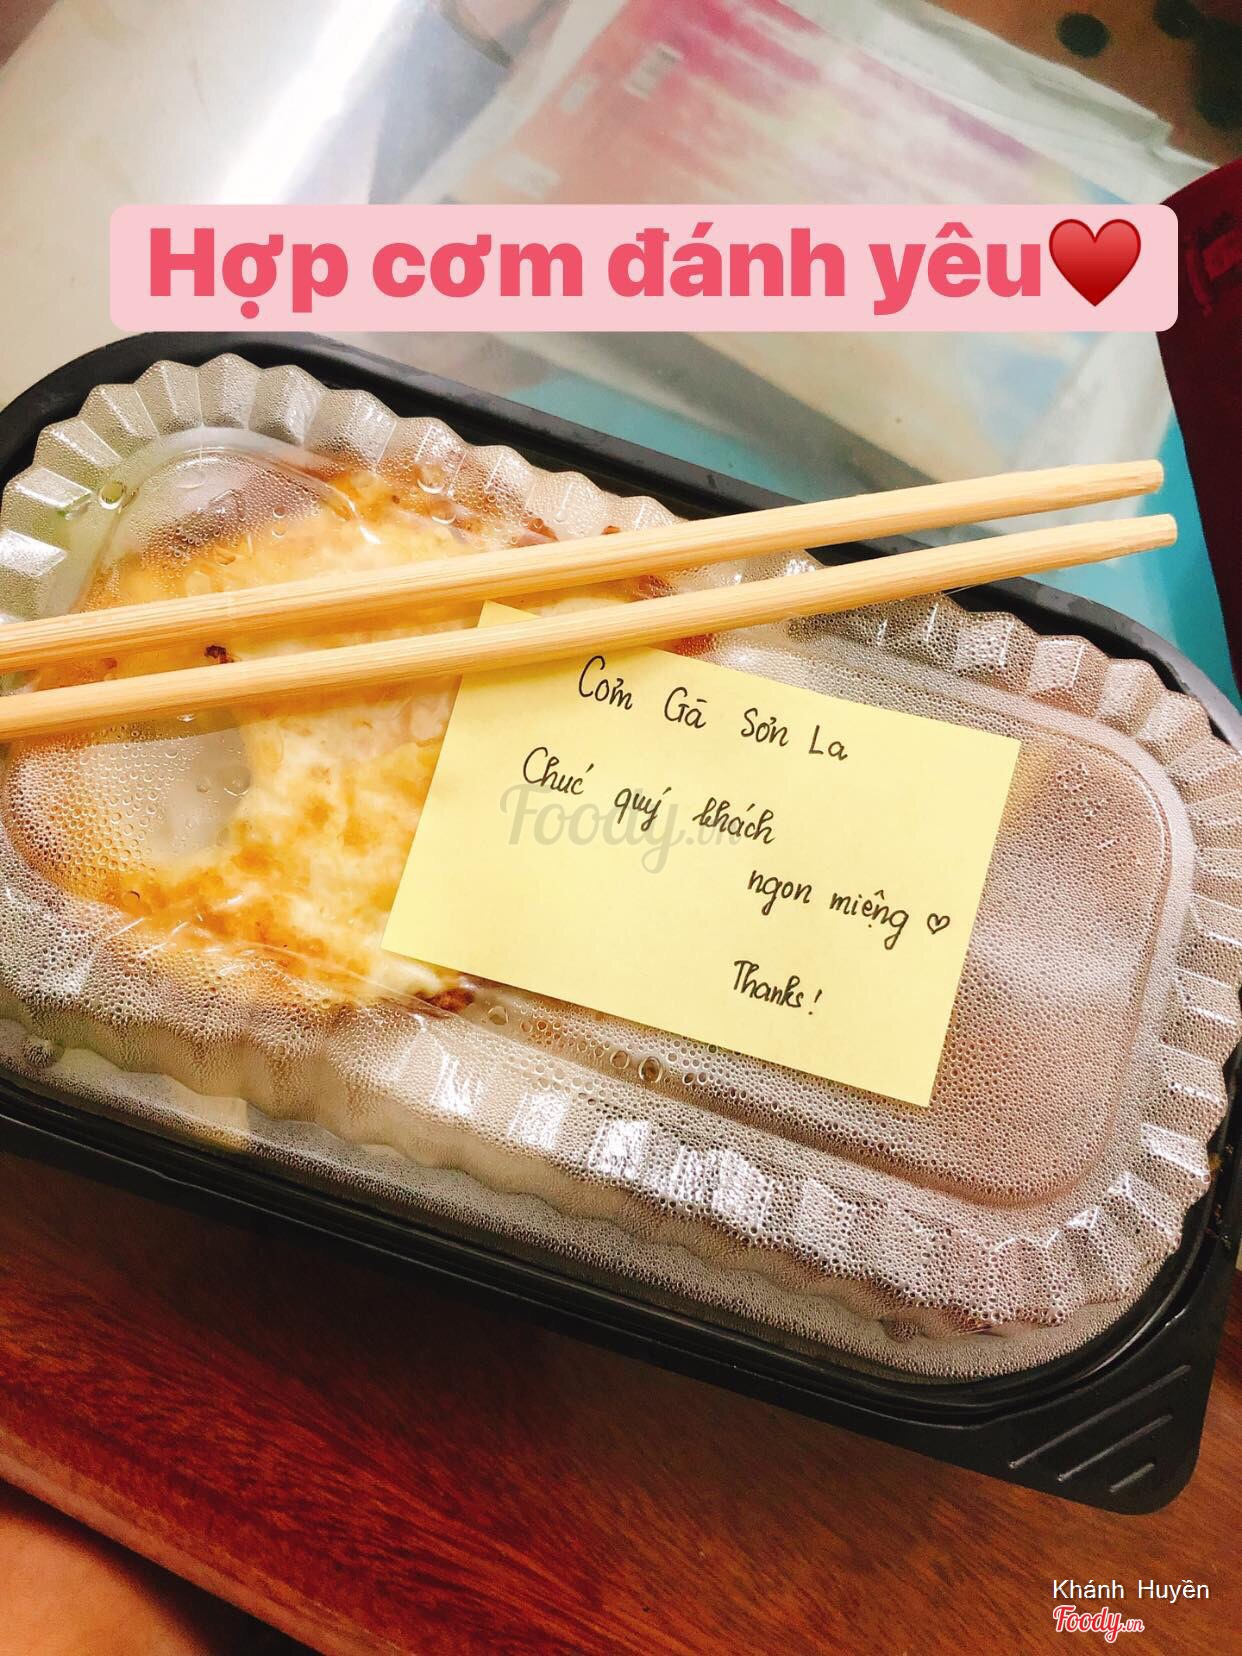 Hợp cơm đánh yêu♥
Cơm Gà Sơn La
Chúc quý khách
ngon miệng ♡
Thanks!
Foody.vn
Khánh Huyền
Foody.vn